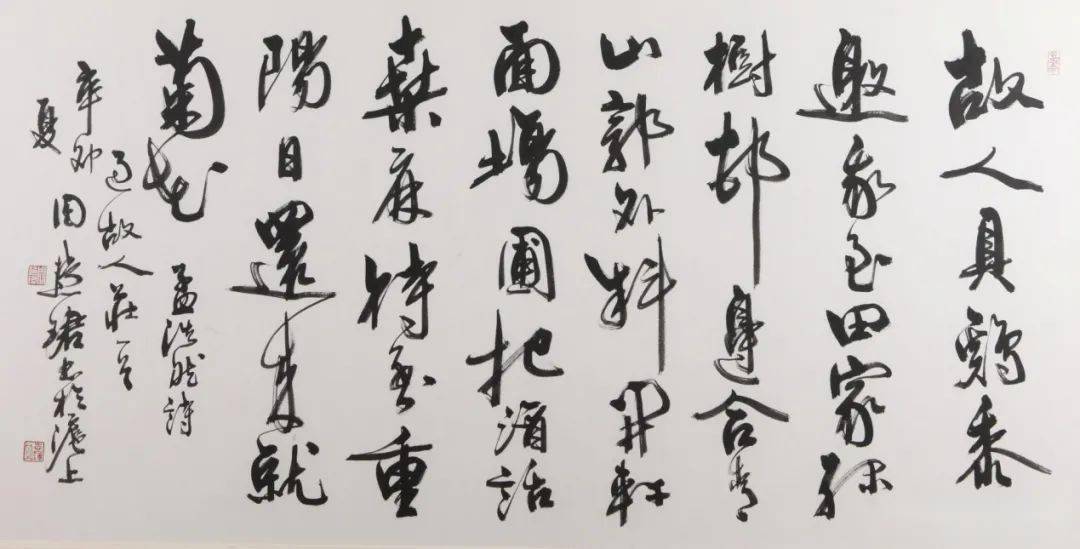 故人具鷄黍
邀我至田家緑
樹邨邊合青
山郭外斜開軒
面場圃把酒話
桑麻待至重
陽日還來就
菊花
孟浩然詩
過故人莊一首
辛卯
夏
田珺书於滬上